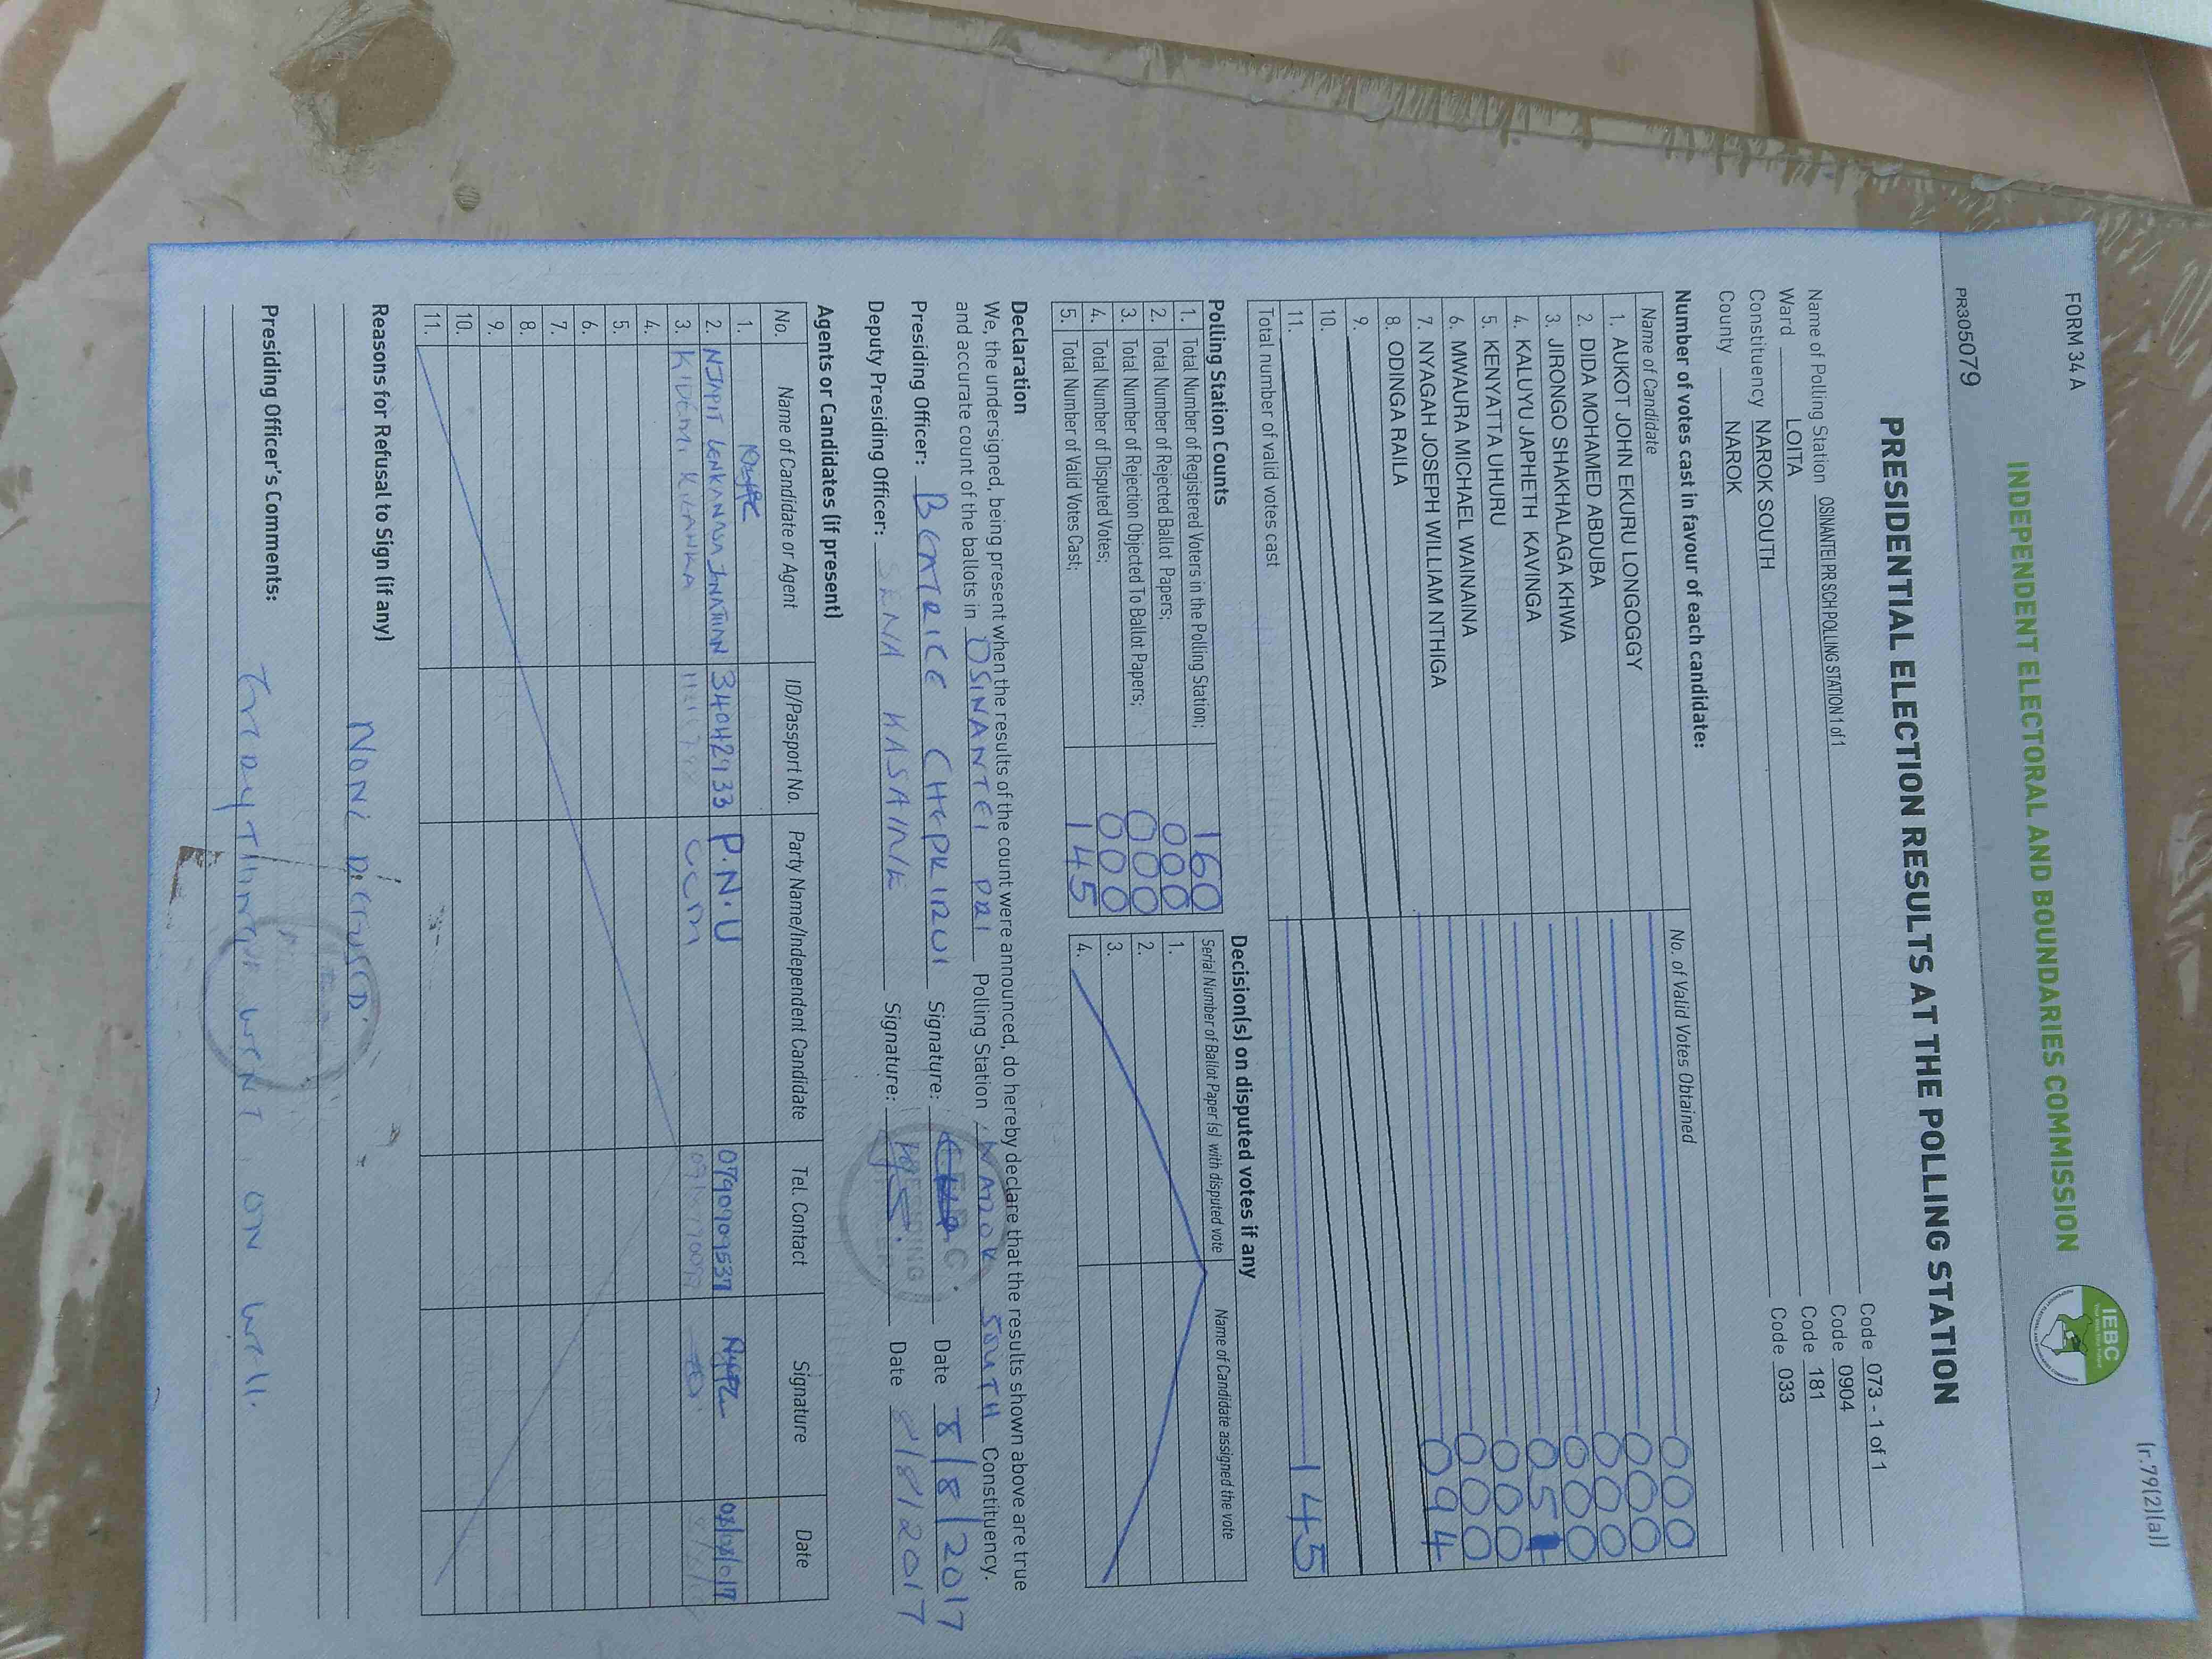 FORM 34 A
(r.79(2)(a))
INDEPENDENT ELECTORAL AND BOUNDARIES COMMISSION
IEBC
PR305079
PRESIDENTIAL ELECTION RESULTS AT THE POLLING STATION
Name of Polling Station OSINANTEI PR SCH POLLING STATION 1 of 1 Code 073 - 1 of 1
Ward LOITA Code 0904
Constituency NAROK SOUTH Code 181
County NAROK Code 033
Number of votes cast in favour of each candidate:
Name of Candidate No. of Valid Votes Obtained
1. AUKOT JOHN EKURU LONGOGGY 000
2. DIDA MOHAMED ABDUBA 000
3. JIRONGO SHAKHALAGA KHWA 000
4. KALUYU JAPHETH KAVINGA 000
5. KENYATTA UHURU 051
6. MWAURA MICHAEL WAINAINA 000
7. NYAGAH JOSEPH WILLIAM NTHIGA 000
8. ODINGA RAILA 094
9.
10.
11.
Total number of valid votes cast 145
Polling Station Counts
1. Total Number of Registered Voters in the Polling Station; 160
2. Total Number of Rejected Ballot Papers; 000
3. Total Number of Rejection Objected To Ballot Papers; 000
4. Total Number of Disputed Votes; 000
5. Total Number of Valid Votes Cast; 145
Decision(s) on disputed votes if any
Serial Number of Ballot Paper (s) with disputed vote Name of Candidate assigned the vote
1.
2.
3.
4.
Declaration
We, the undersigned, being present when the results of the count were announced, do hereby declare that the results shown above are true
and accurate count of the ballots in OSINANTEI PRI Polling Station NAROK SOUTH Constituency.
Presiding Officer: BEATRICE CHEPKIRUI Signature: Date 8/8/2017
Deputy Presiding Officer: SENA KASAINE Signature: Date 8/8/2017
PRESIDING
Agents or Candidates (if present)
No. Name of Candidate or Agent ID/Passport No. Party Name/Independent Candidate Tel. Contact Signature Date
1.
2. 34042933 P.N.U 0790909537
3. CCM
4.
5.
6.
7.
8.
9.
10.
11.
Reasons for Refusal to Sign (if any)
Presiding Officer's Comments:
WENT ON WELL.